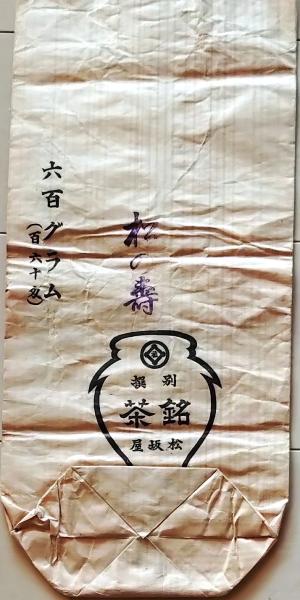 松の壽
六百グラム
(百六十匁)
別撰
銘茶
松坂屋